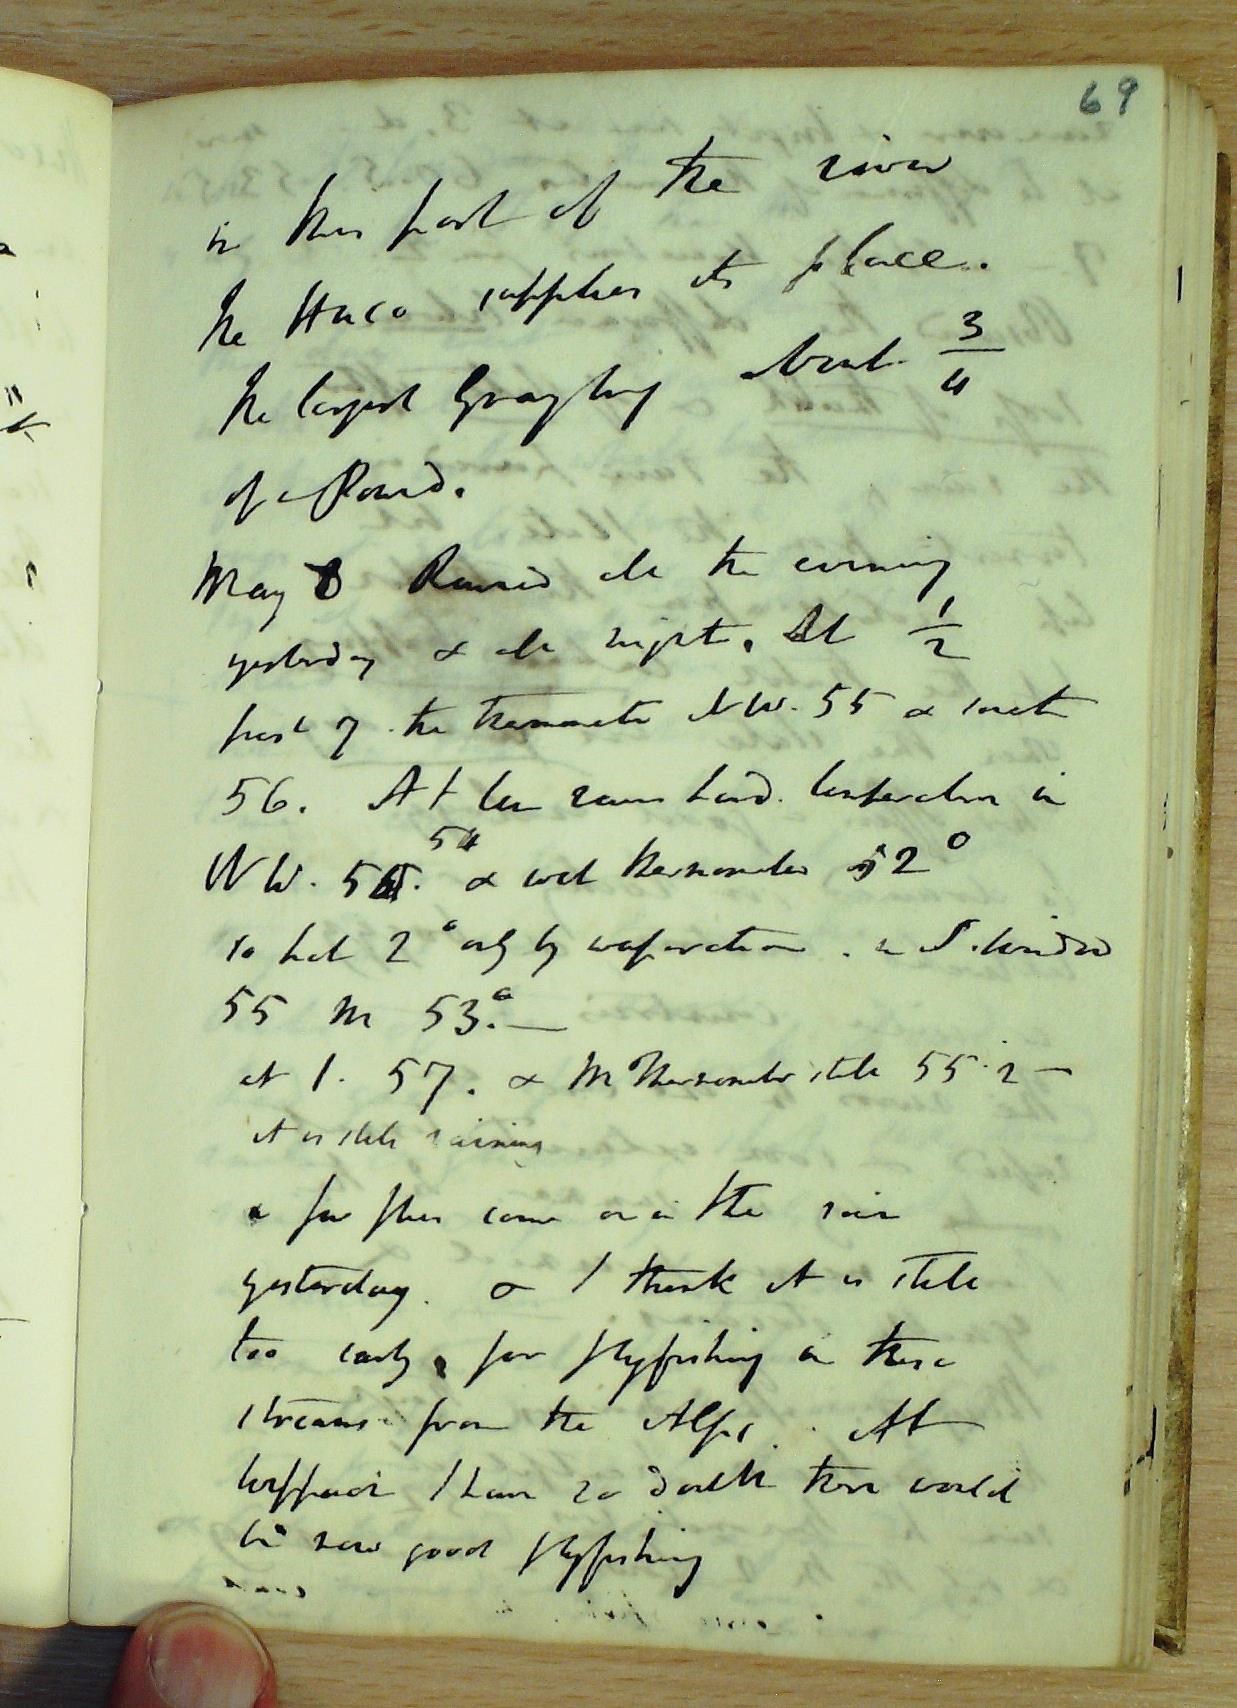 69
in this part of the river
the Huco supplies its place.
the largest Grayling about 3/4
of a Pound.
May 8 Rained all the evening
yesterday & all night. At 1/2
past 7 the thermometer NW. 55 & south
56. At ten rains hard. temperature in
NW. 54 & wet thermometer 52°
so lost 2° only by evaporation. in S. window
55 M 53°. —
at 1. 57. & M Thermometer still 55.2 —
it is still raining
a few flies come on in the rain
yesterday. & I think it is still
too early for flyfishing in these
streams from the Alps. At
I have no doubt there would
be now good flyfishing